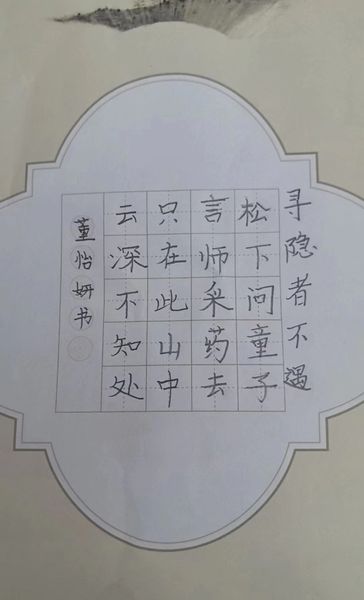 寻隐者不遇
松下问童子
言师采药去
只在此山中
云深不知处
董怡妍书